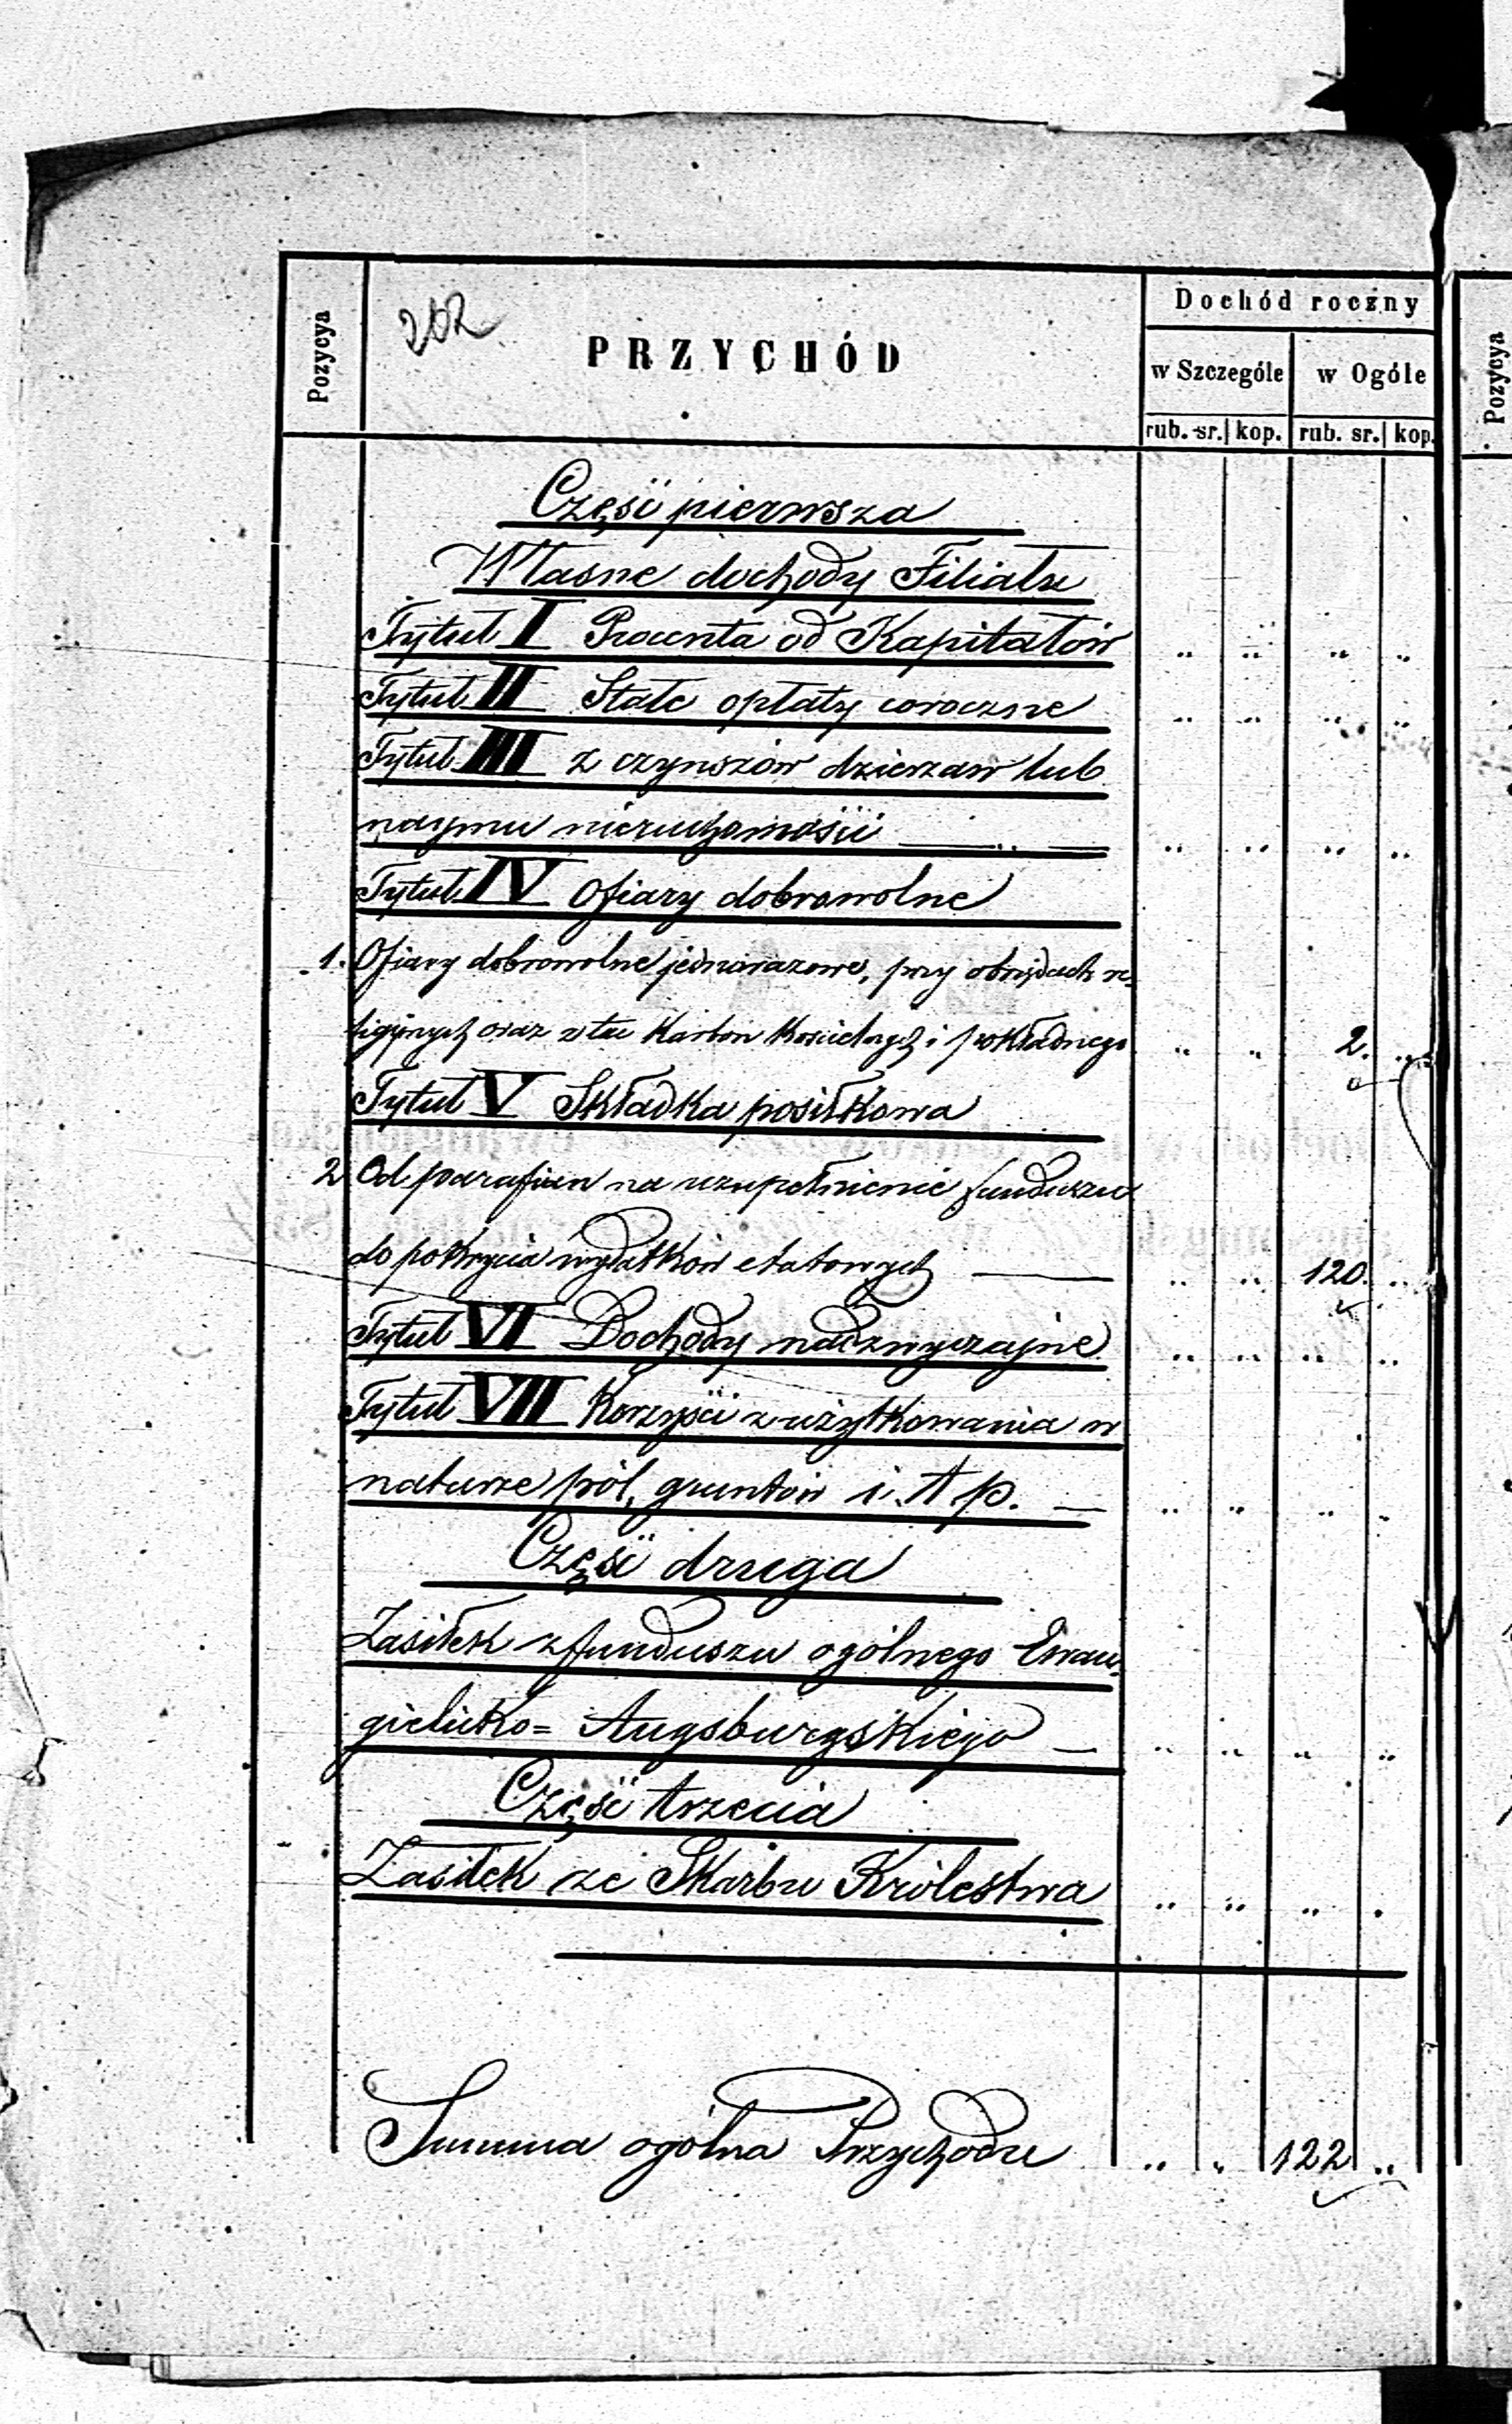 Dochód roczny
Pozycya
202
PRZYCHÓD
w Szczególe w Ogóle
Pozycya
rub. sr. kop. rub. sr. kop.
Część pierwsza
Własne dochody Filiału
Tytuł I Procenta od Kapitałów " " " "
Tytuł II Stałe opłaty coroczne " " " "
Tytuł III z czynszów dzierżaw lub
najmu nieruchomości " " " "
Tytuł IV Ofiary dobrowolne
1. Ofiary dobrowolne jednorazowe, przy obrzędach re-
ligijnych oraz z Kościelnych i pokładnego " " 2. "
Tytuł V Składka posiłkowa
2 Od parafian na uzupełnienie funduszu
do pokrycia wydatków etatowych — " " 120. "
Tytuł VI Dochody nadzwyczajne " " " "
Tytuł VII Korzyści z użytkowania w
naturze pól, gruntów i. t p. — " " " "
Część druga
Zasiłek z funduszu ogólnego Ewan-
gielicko= Augsburgskiego — " " " "
Część trzecia
Zasiłek ze Skarbu Królestwa " " " "
Summa ogólna Przychodu " " 122 "